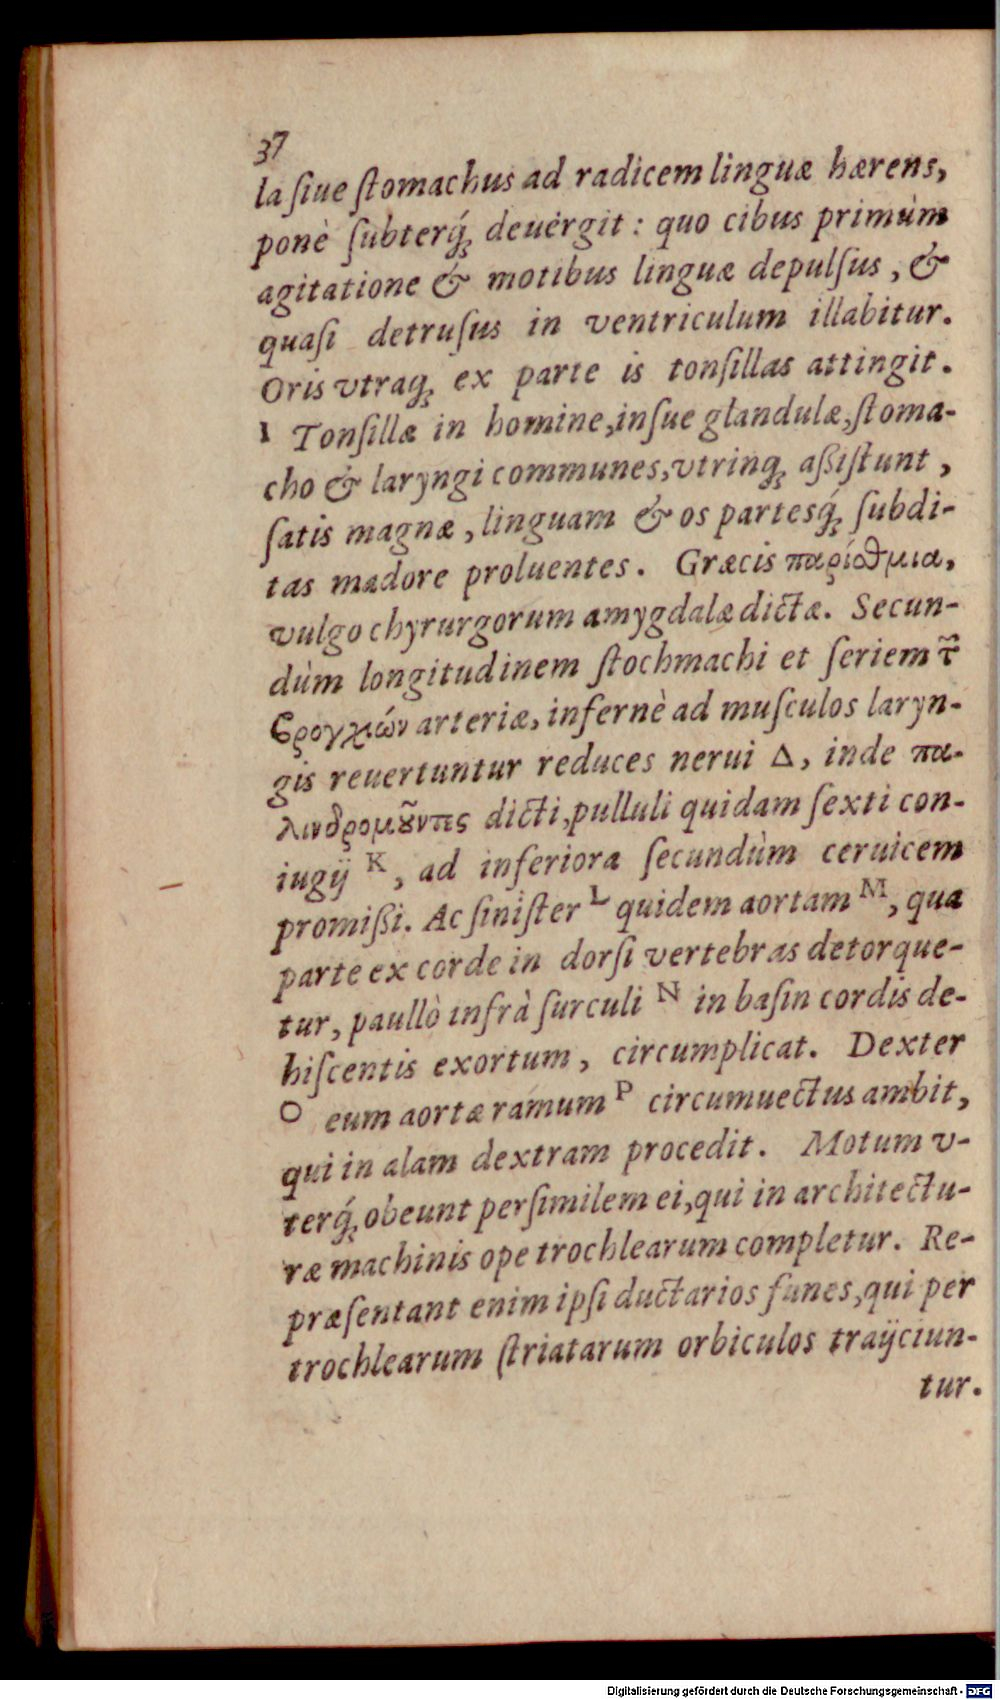 37
la ſiue ſtomachus ad radicem linguæ hærens,
ponè ſubterq́; deuérgit : quo cibus primùm
agitatione & motibus linguæ depulſus , &
quaſi detruſus in ventriculum illabitur.
Oris vtraq; ex parte is tonſillas attingit.
I Tonſillæ in homine,inſue glandulæ,ſtoma-
cho & laryngi communes,vtrinq; aßiſtunt ,
ſatis magnæ , linguam & os partesq́; ſubdi-
tas madore proluentes . Græcis παρίσθμια,
vulgo chyrurgorum amygdalæ dictæ. Secun-
dùm longitudinem ſtochmachi et ſeriem τ͂
βρογχιών arteriæ, infernè ad muſculos laryn-
gis reuertuntur reduces nerui Δ, inde πα-
λινδρομȣ͂ντες dicti,pulluli quidam ſexti con-
iugij K , ad inferiora ſecundùm ceruicem
promißi. Ac ſiniſter L quidem aortam M , qua
parte ex corde in dorſi vertebras detorque-
tur, paullò infrà ſurculi N in baſin cordis de-
hiſcentis exortum , circumplicat. Dexter
O eum aortæ ramum P circumuectus ambit,
qui in alam dextram procedit . Motum v-
terq́; obeunt perſimilem ei,qui in architectu-
ræ machinis ope trochlearum completur. Re-
præſentant enim ipſi ductarios funes,qui per
trochlearum ſtriatarum orbiculos traijciun-
tur.
Digitalisierung gefördert durch die Deutsche Forschungsgemeinschaft - DFG